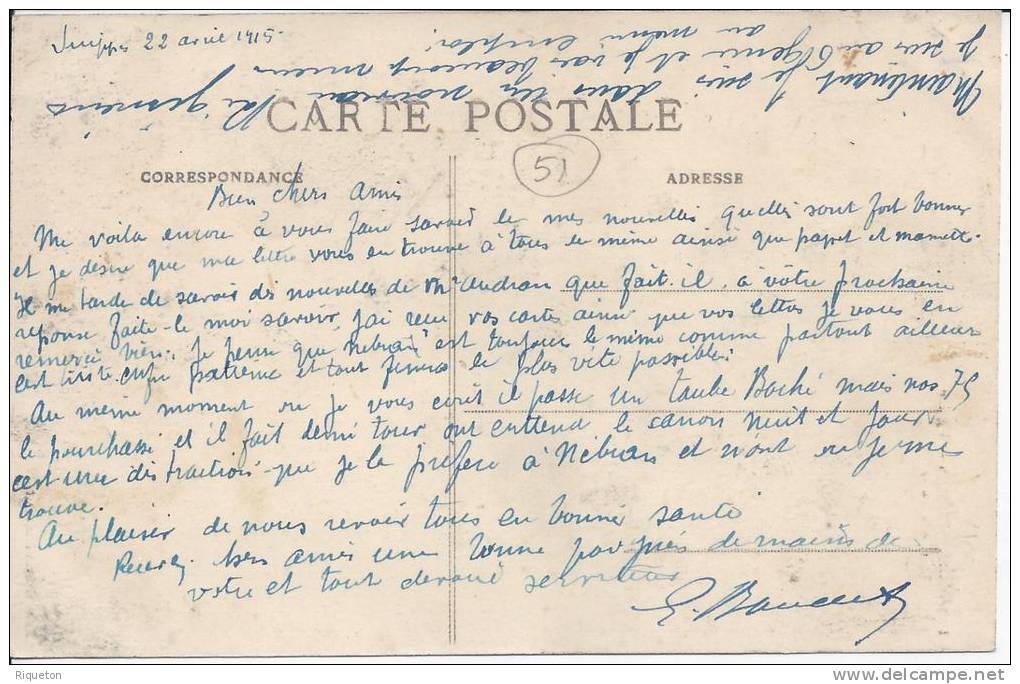 Suippes 22 avril 1915
Maintenant je suis dans un nouveau
je suis au 6e génie et je vais beaucoup mieux
au même emploi
CARTE POSTALE
51
CORRESPONDANCE
ADRESSE
Bien chers amis
Me voila encore à vous faire savoir de mes nouvelles quelles sont fort bonnes
et je desire que ma lettre vous en trouve à tous de même ainsi que papet et mamette.
Il me tarde de savoir des nouvelles de Mr Audran que fait-il, à vôtre prochaine
reponse faite-le moi savoir, j'ai reçu vos cartes ainsi que vos lettres je vous en
remercie bien. Je pense que Nebian est toujours le même comme partout ailleurs
c'est triste. enfin patience et tout finira le plus vite possible.
Au même moment ou je vous écrit il passe un taube Boche mais nos 75
le pourchasse et il fait demi tour, ont entend le canon nuit et jour
c'est une distraction que je la prefere à Nebian et n'ont ou je me
trouve.
Au plaisir de nous revoir tous en bonne santé
chers amis une bonne poignées de mains de
votre et tout devoué serviteur
Riqueton
www.delcampe.net